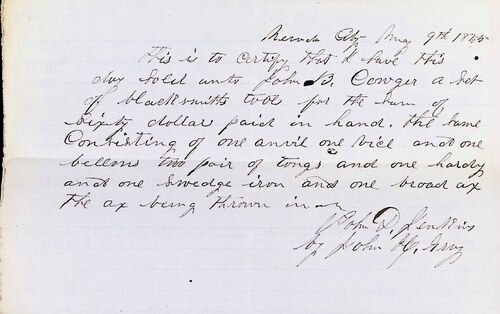 Nevada City May 9th 1865
This is to certify that I have this
day sold unto John B. Cowger a set
of blacksmiths tools for the sum of
sixty dollar paid in hand. the same
Consisting of one anvil one vice and one
bellows two pair of tongs and one hardy
and one swedge iron and one broad ax
the ax being thrown in
John D. Jenkins
by John H. Gray